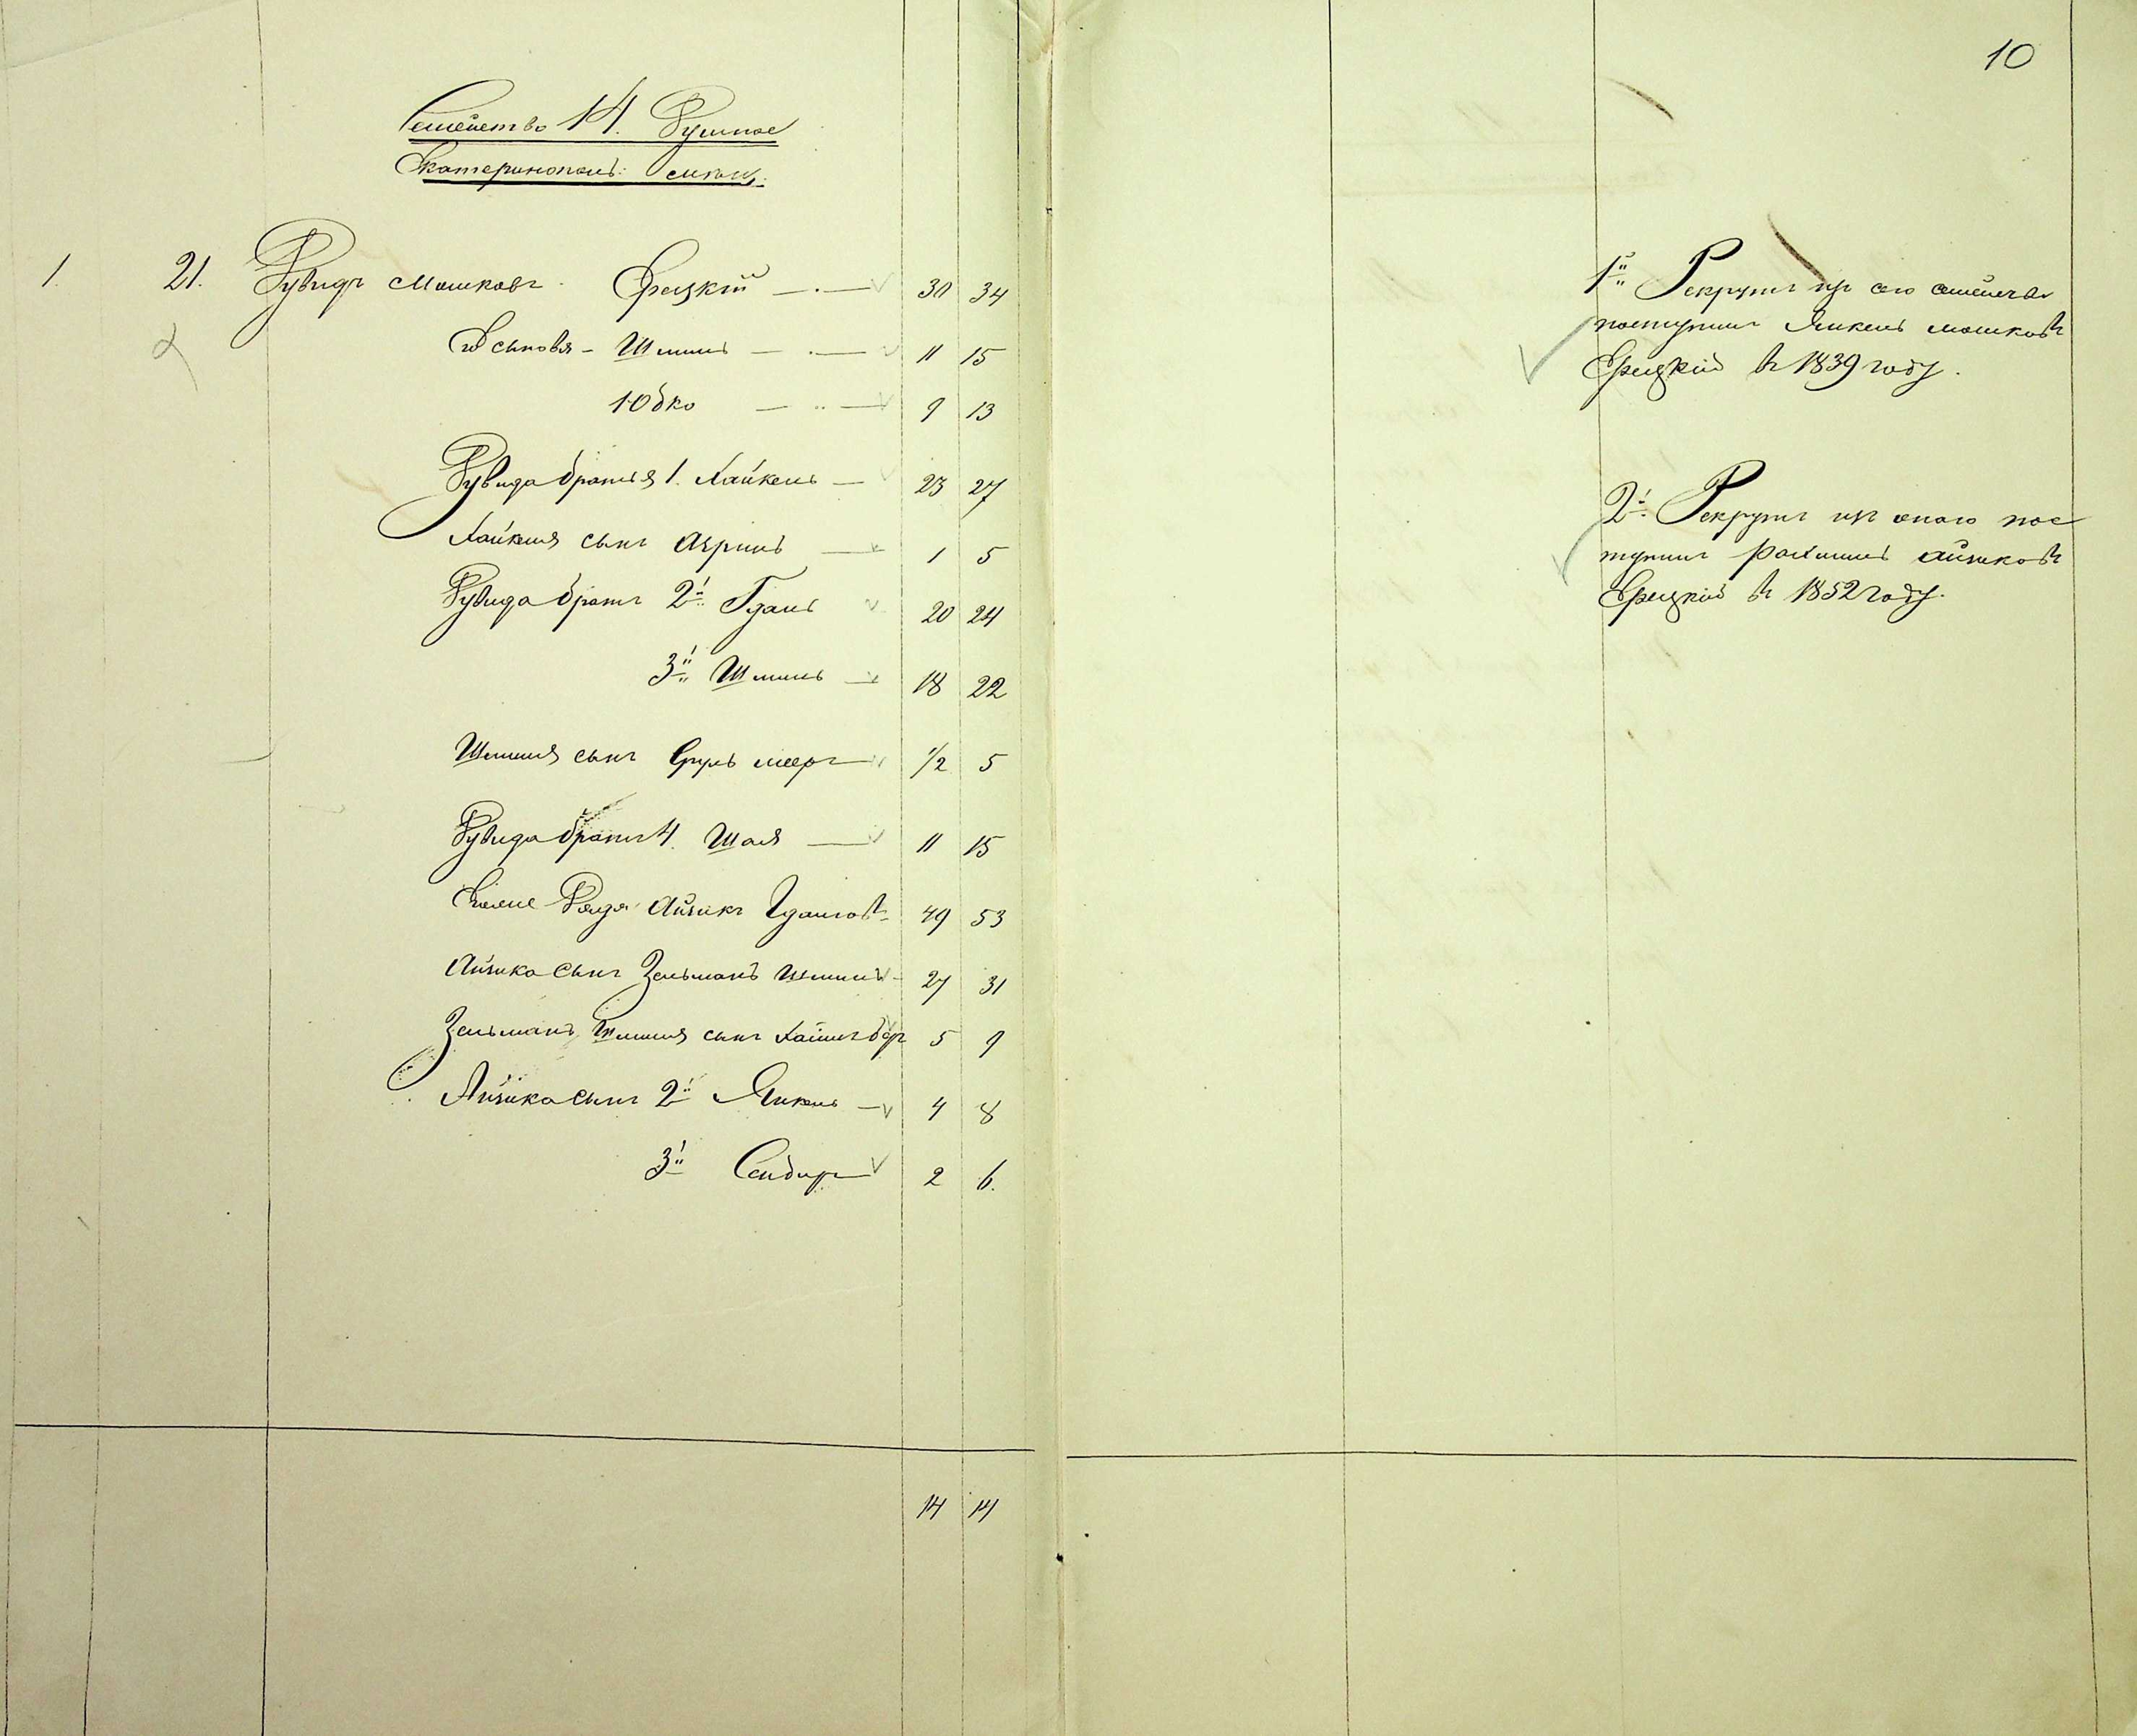 10
Семейство 14. Душное
Екатеринопольс:
1. 21. Рувидъ Мошковъ Ерецкій 30 34
Его сыновья - Шмиль 11 15
Юдко 9 13
Рувида братья 1. Хайкель 23 27
Хайкеля сынъ Азриль 1 5
Рувида братъ 2й Гдаль 20 24
3й Шмиль 18 22
Шмиля сынъ Сруль мееръ 1/2 5
Рувида братъ 4. Шая 11 15
Дядя Айзикъ Гдалов 49 53
Айзика сынъ Зельманъ Шмиль 27 31
Зельманъ Шмиля сынъ Хаимъ беръ 5 9
Айзика сынъ 2й Янкель 4 8
3й 2 6.
14 14
1й Рекрутъ изъ сего семейства
поступилъ Янкель мошковъ
Ерецкій въ 1839 году.
2й Рекрутъ изъ оного пос
тупилъ Рахмиль айзиковъ
Ерецкій въ 1852 году.